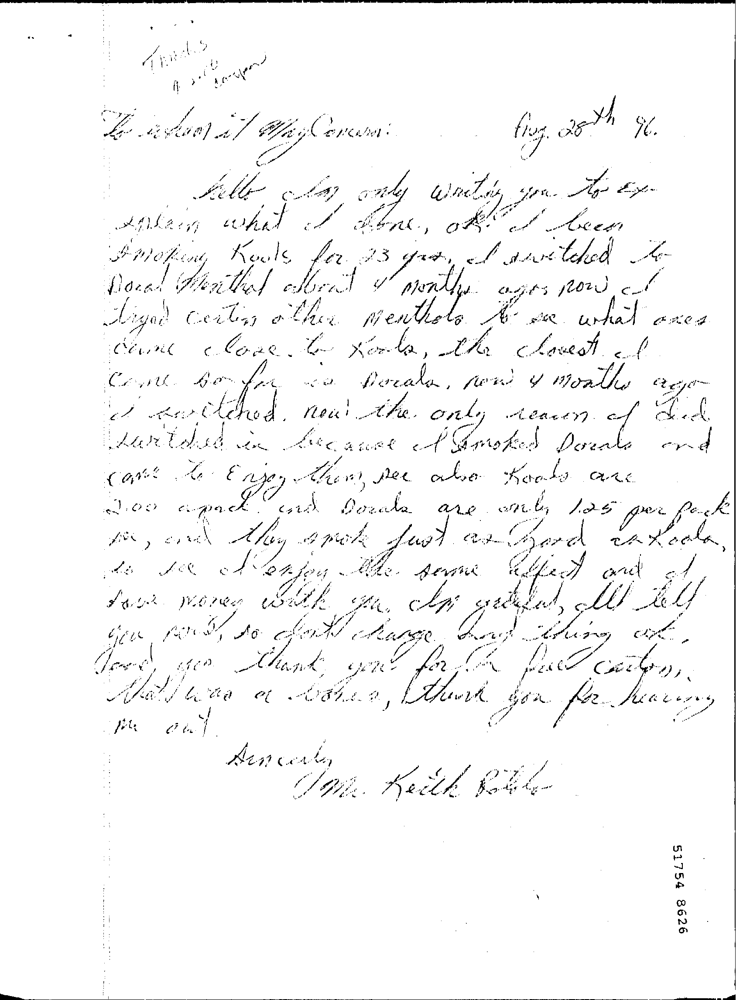 Thanks
To whom it May Concern:
Aug. 28th 96.
hello I'm only writing you to ex-
explain what I done, ok. I been
smoking Kools for 23 yrs, I switched to
Doral Menthol about 4 months ago, now I
tryed certin other menthols to see what ones
came close to Kools, the closest I
come so far is Dorals, now 4 months ago
I switched. now the only reason I did
switched is because I smoked Dorals and
came to Enjoy them, see also Kools are
2.00 a pack and Dorals are only 1.25 per pack
see, and they smoke just as good as Kools,
so see I enjoy the same effect and I
save money with you. I'm grateful, I'll tell
you now, so don't change any thing ok.
and yes thank you for free carton,
that was a bonus, thank you for hearing
me out.
Sincerly
Mr. Keith
51754 8626